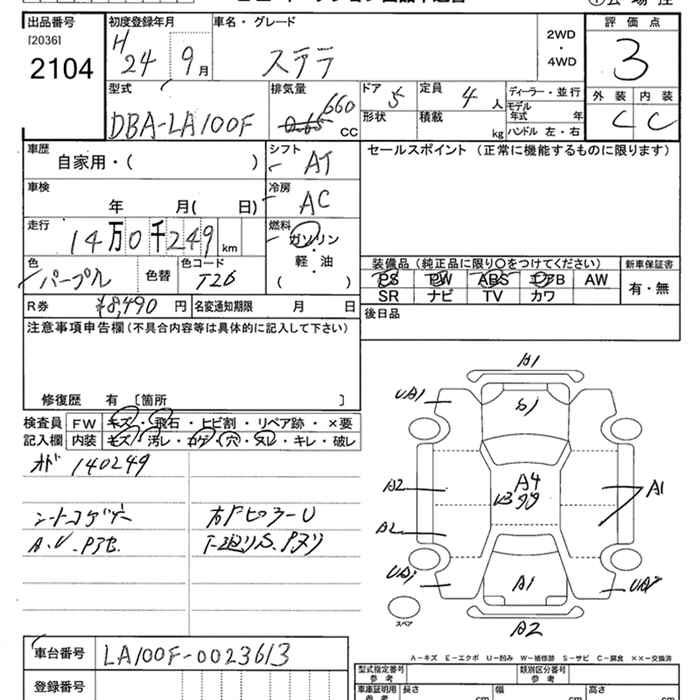 出品番号
[2036]
2104
初度登録年月
H
24 9月
車名・グレード
ステラ
2WD
・
4WD
評価点
3
外装 内装
C C
型式
DBA-LA100F
排気量
660
0.65 CC
ドア 5
定員 4 人
形状
積載 kg
ディーラー・並行
モデル年式 年
ハンドル 左・右
車歴
自家用・( )
シフト
AT
セールスポイント (正常に機能するものに限ります)
車検
年 月( 日)
冷房
AC
走行
14万0千249km
燃料
ガソリン
・
軽・油
( )
色
パープル
色替
色コード
T26
装備品(純正品に限り〇をつけてください)
PS PW ABS エアB AW
SR ナビ TV カワ
新車保証書
有・無
R券
¥8,490円
名変通知期限 月 日
後日品
注意事項申告欄(不具合内容等は具体的に記入して下さい)
修復歴 有 [箇所 ]
検査員
記入欄
FW キズ・飛石・ヒビ割・リペア跡・×要
内装 キズ・汚レ・コゲ・穴・ヌレ・キレ・破レ
オド 140249
シートコゲ
A1
UA1
S1
A2
A4
A1
A2
UA1
A1
A2
スペア
A-キズ E-エクボ U-凹み W-補修跡 S-サビ C-腐食 ××-交換済
車台番号
LA100F-0023613
登録番号
型式指定番号
参考
類別区分番号
参考
車庫証明用
参考
長さ cm
幅 cm
高さ cm